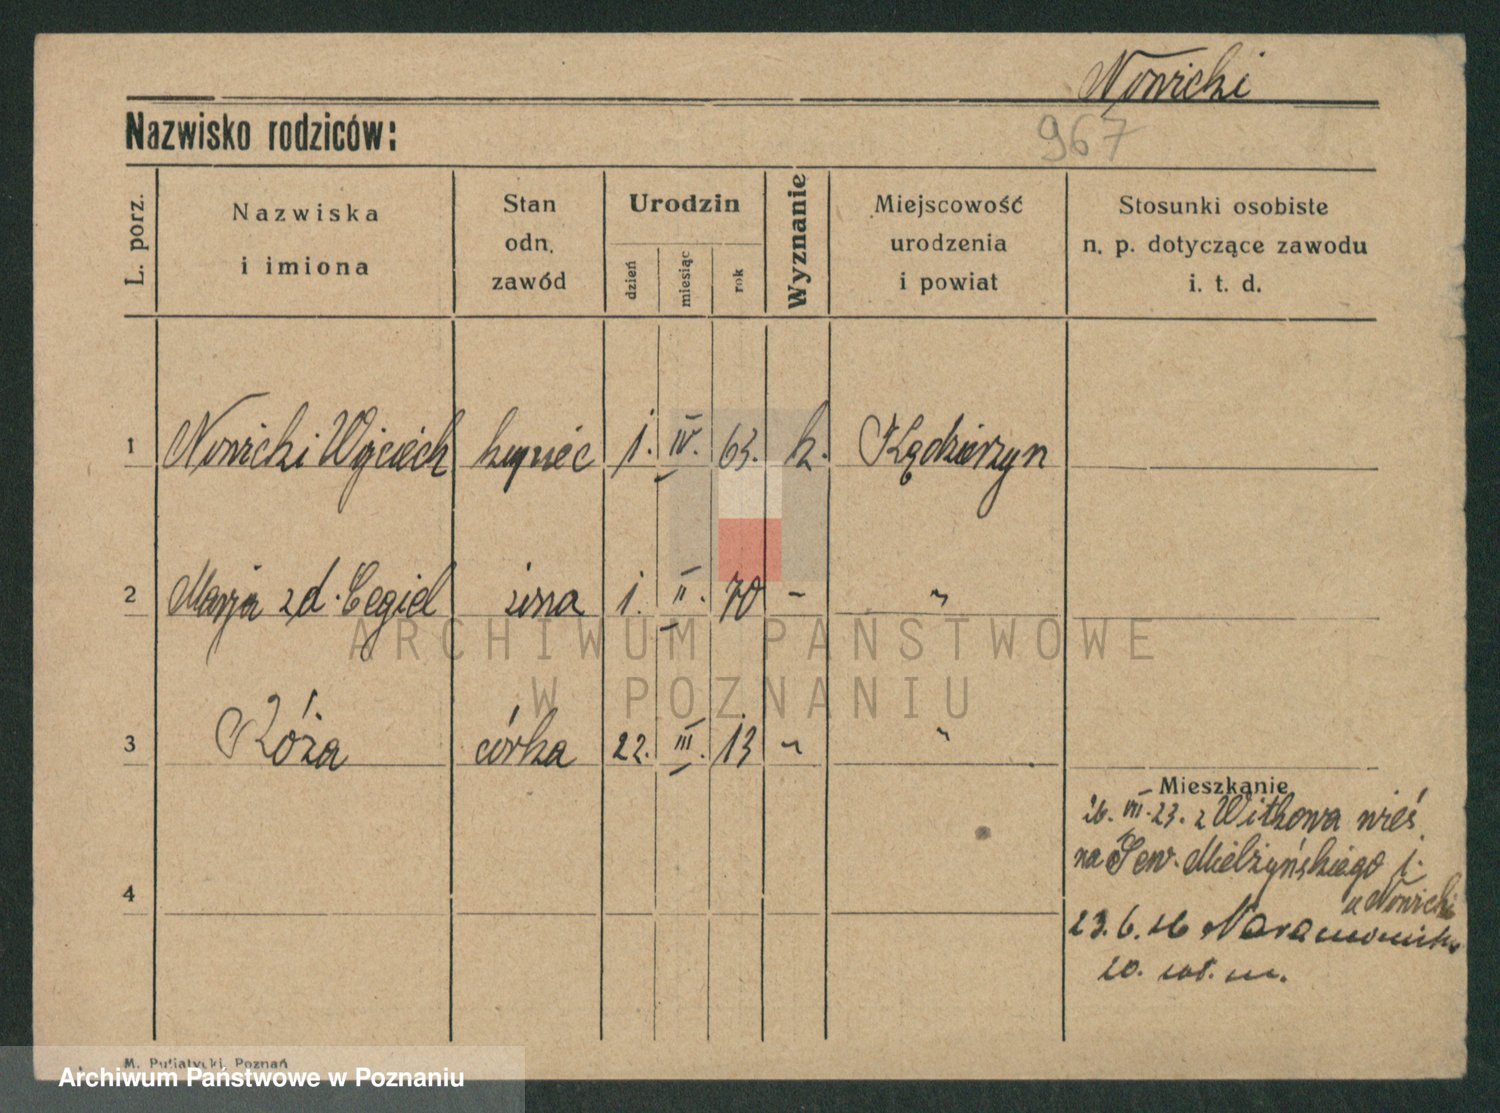 Nowicki
Nazwisko rodziców:
967
L. porz.
Nazwiska
i imiona
Stan
odn.
zawód
Urodzin
dzień
miesiąc
rok
Wyznanie
Miejscowość
urodzenia
i powiat
Stosunki osobiste
n. p. dotyczące zawodu
i. t. d.
1 Nowicki Wojciech kupiec 1. IV. 63. k. Kędzierzyn
2 Marja zd. Cegiel żona 1. II. 70 - "
3 Róża córka 22. III. 13 - "
4
Mieszkanie
26. VII. 23. z Witkowa wieś
na Sew. Mielżyńskiego 1.
u Nowicki
23. 6. 26 Naramowicka
20.
M. Putiatycki, Poznań
ARCHIWUM PAŃSTWOWE
W POZNANIU
Archiwum Państwowe w Poznaniu